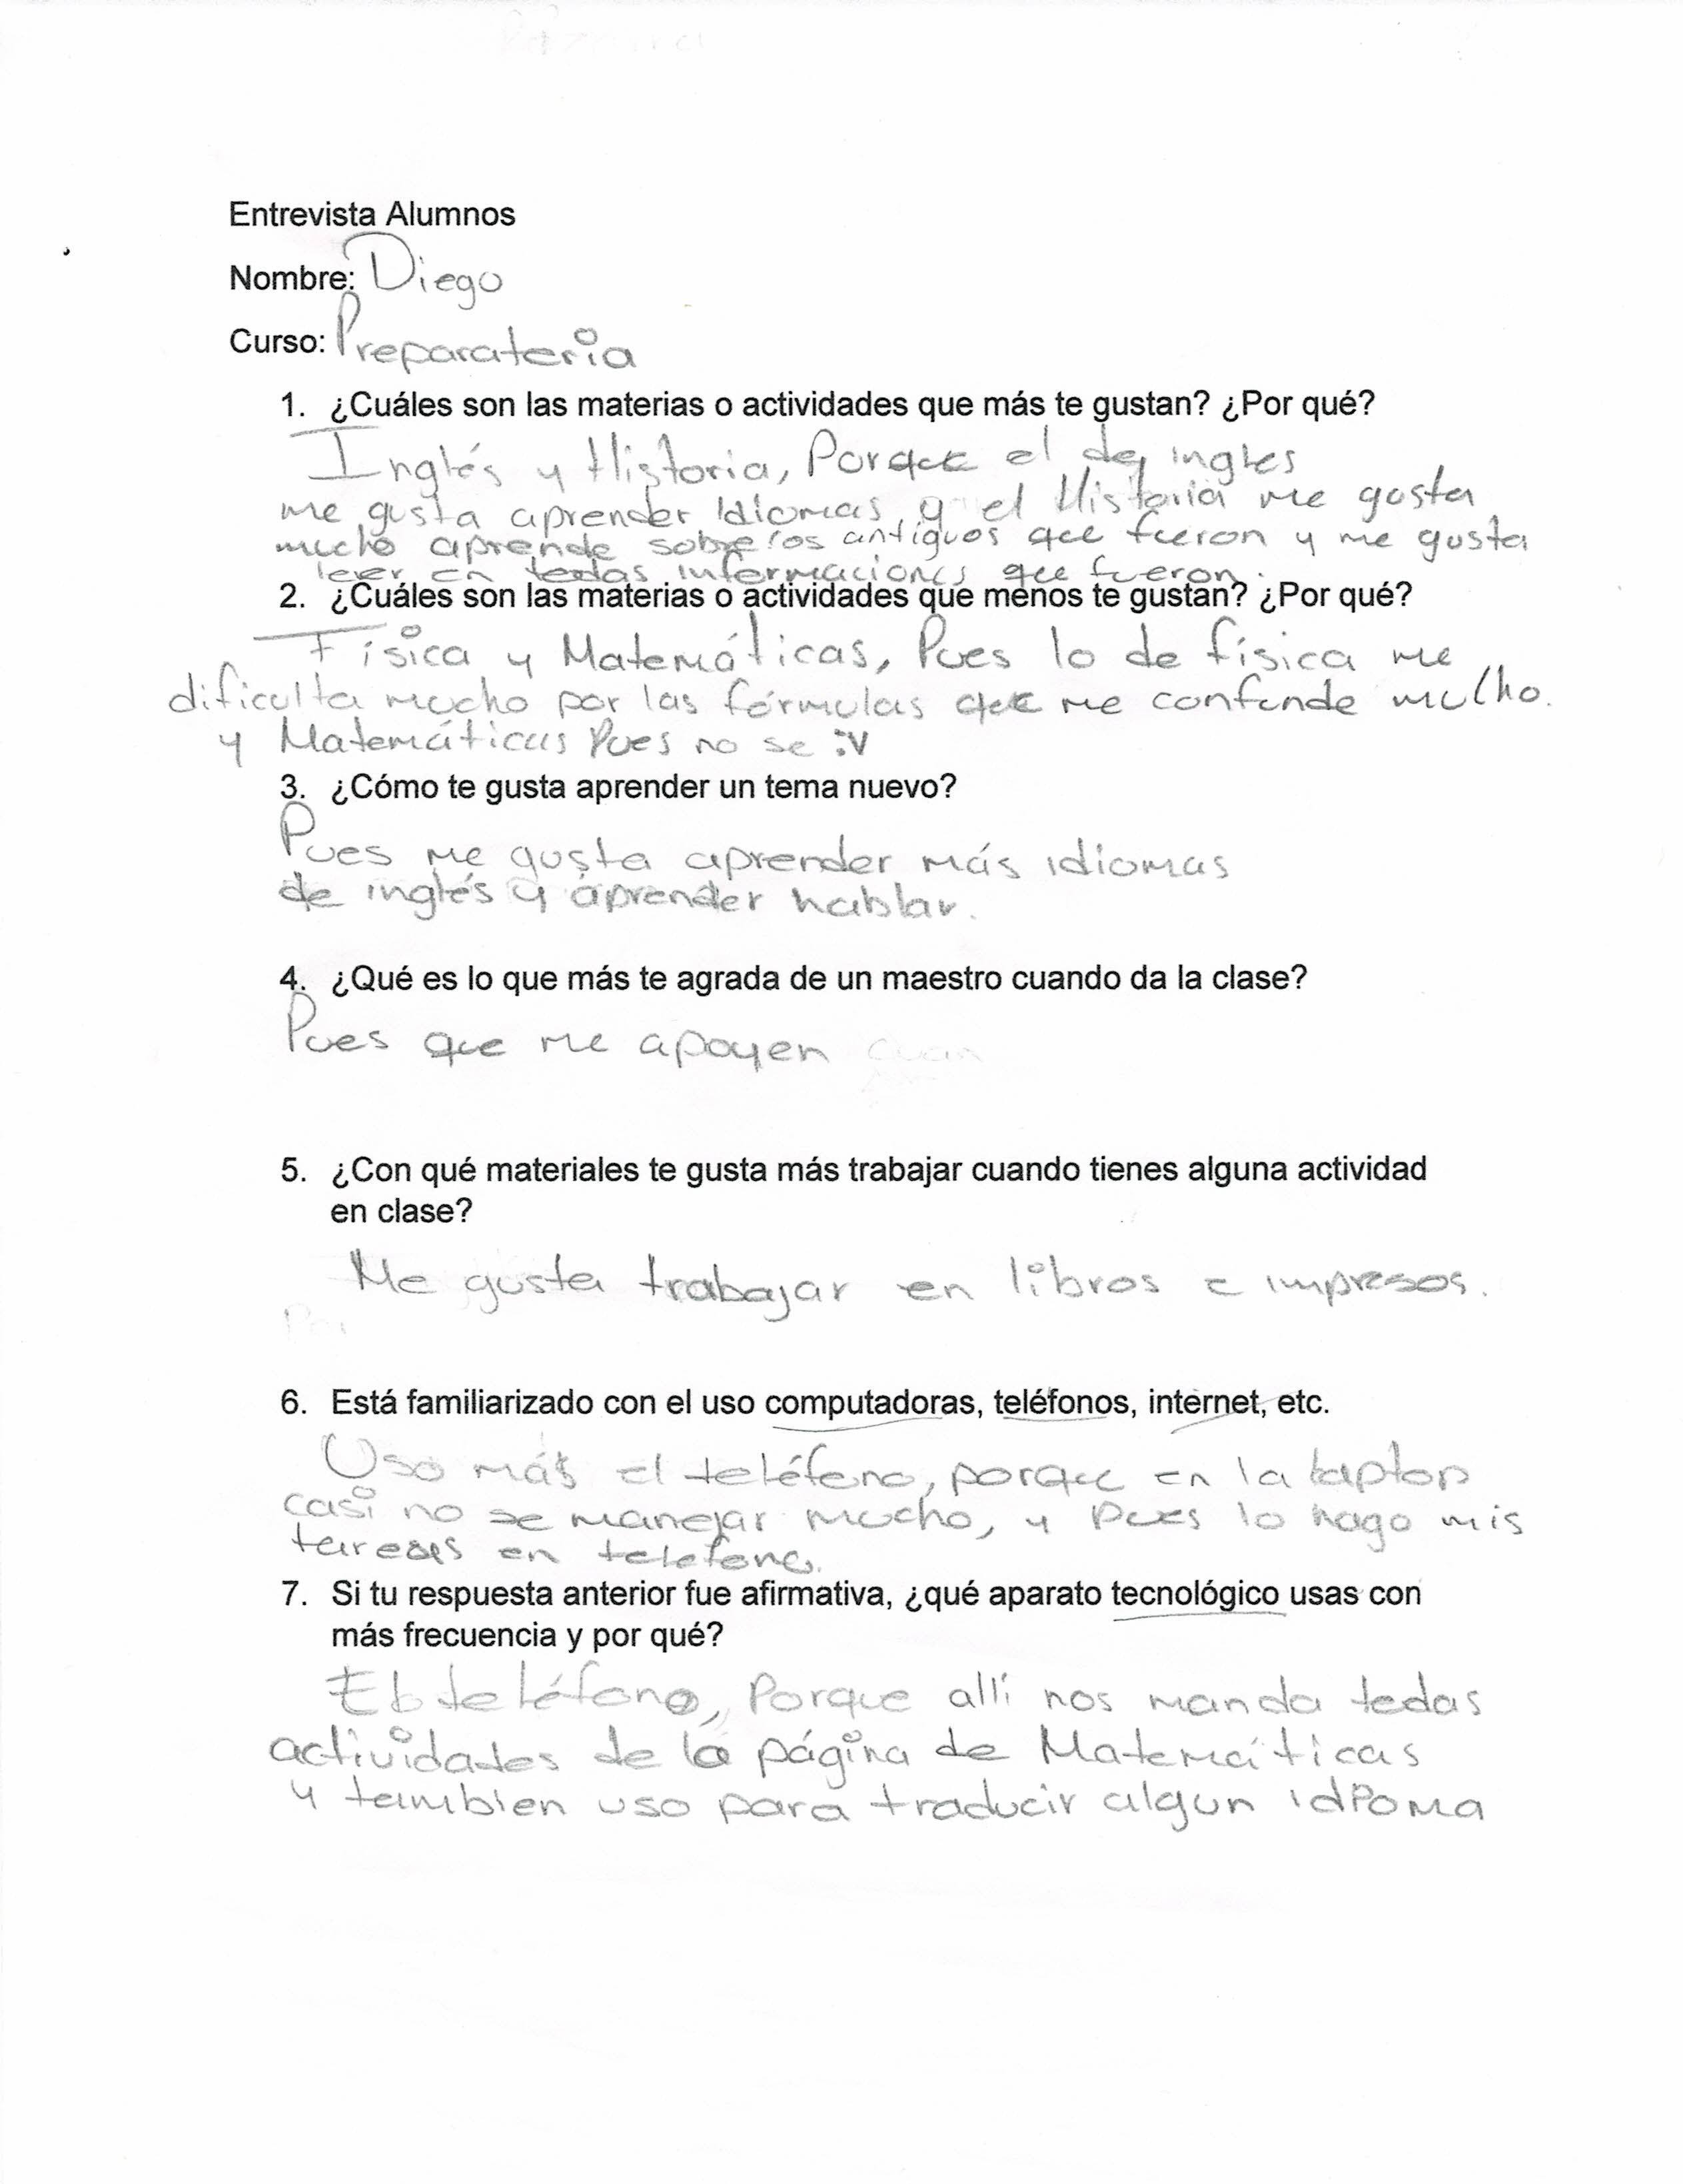 Entrevista Alumnos
Nombre: Diego
Curso: Preparateria
1. ¿Cuáles son las materias o actividades que más te gustan? ¿Por qué?
Inglés y Historia, Porque el de ingles
me gusta aprender Idiomas y el Historia me gusta
mucho aprende sobre los antiguos que fueron y me gusta
leer en todas informaciones que fueron.
2. ¿Cuáles son las materias o actividades que menos te gustan? ¿Por qué?
Física y Matemáticas, Pues lo de física me
dificulta mucho por las fórmulas que me confunde mucho.
y Matemáticas Pues no se :V
3. ¿Cómo te gusta aprender un tema nuevo?
Pues me gusta aprender más idiomas
de inglés y aprender hablar.
4. ¿Qué es lo que más te agrada de un maestro cuando da la clase?
Pues que me apoyen cuan
5. ¿Con qué materiales te gusta más trabajar cuando tienes alguna actividad
en clase?
Me gusta trabajar en libros e impresos.
6. Está familiarizado con el uso computadoras, teléfonos, internet, etc.
Uso más el teléfono, porque en la laptop
casi no se manejar mucho, y pues lo hago mis
tareas en telefono.
7. Si tu respuesta anterior fue afirmativa, ¿qué aparato tecnológico usas con
más frecuencia y por qué?
El teléfono, Porque allí nos manda todas
actividades de la página de Matemáticas
y tambien uso para traducir algun idioma